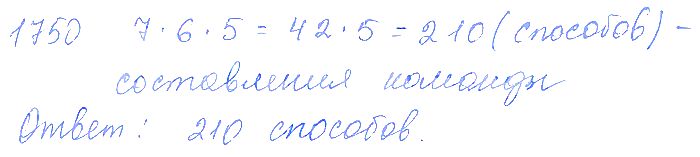 1750 7·6·5 = 42·5 = 210 (способов) –
составления команды
Ответ: 210 способов.